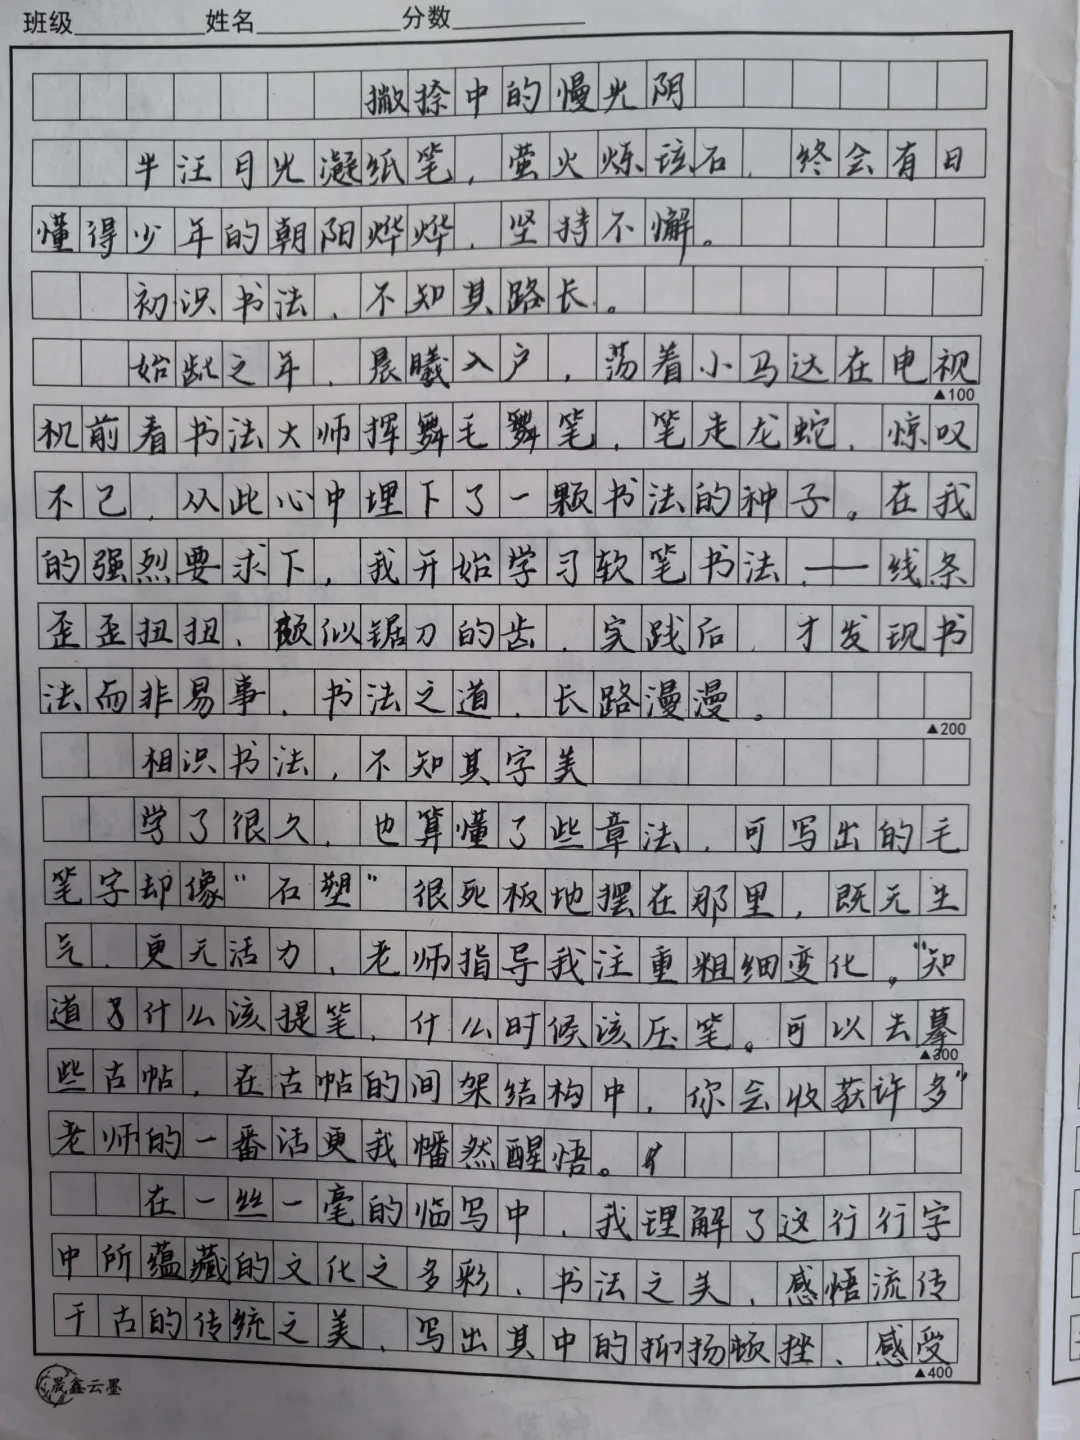 班级 姓名 分数
撇捺中的慢光阴
半汪月光凝纸笔，萤火炼该石，终会有日
懂得少年的朝阳烨烨，坚持不懈。
初识书法，不知其路长。
始龀之年，晨曦入户，荡着小马达在电视
▲100
机前看书法大师挥舞毛舞笔，笔走龙蛇，惊叹
不已，从此心中埋下了一颗书法的种子。在我
的强烈要求下，我开始学习软笔书法，——线条
歪歪扭扭，颇似锯刀的齿，实践后，才发现书
法而非易事，书法之道，长路漫漫。
▲200
相识书法，不知其字美
学了很久，也算懂了些章法，可写出的毛
笔字却像“石塑”很死板地摆在那里，既无生
气，更无活力，老师指导我注重粗细变化，“知
道什么该提笔，什么时候该压笔。可以去摹
▲300
些古帖，在古帖的间架结构中，你会收获许多”
老师的一番话更我幡然醒悟。
在一丝一毫的临写中，我理解了这行行字
中所蕴藏的文化之多彩、书法之美，感悟流传
千古的传统之美，写出其中的抑扬顿挫、感受
▲400
晟鑫云墨